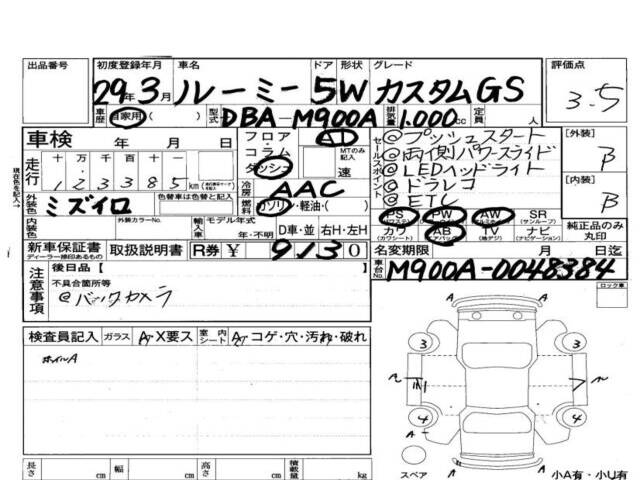 出品番号 初度登録年月 車名 ドア 形状 グレード 評価点
29年 3月 ルーミー 5W カスタムGS 3.5
車歴 自家用 ( ) 型式 DBA-M900A 排気量 1.000cc 定員 人
車検 年 月 日
フロア・コラム ダッシュ AT MTのみ記入 速
セールスポイント
@プッシュスタート
@両側パワースライド
@LEDヘッドライト
@ドラレコ
@ETC
[外装] B
[内装] B
走行 十万 万 千 百 十 一
123385 km
現在色を記入→
冷房 AAC
外装色 ミズイロ 色替車は色替と記入
燃料 ガソリン・軽油・( )
内装色 外装カラーNo. 輸入車 モデル年式 年・不明 D車・並 右H・左H
PS (パワステ) PW AW SR (サンルーフ)
カワ (カワシート) AB (エアバッグ) TV (地デジ) ナビ (ナビゲーション)
純正品のみ丸印
新車保証書 ディーラー捺印あるもの 取扱説明書 R券 ¥ 9130
名変期限 月 日迄
車台No. M900A-0048384
注意事項
後日品【
不具合箇所等
@バックカメラ
ロック車
検査員記入 ガラス A X要ス 室内シート A コゲ・穴・汚れ・破れ
ホイルA
A
3 3
4 4
A
スペア
小A有・小U有
長さ cm 幅 cm 高さ cm 積載量 kg